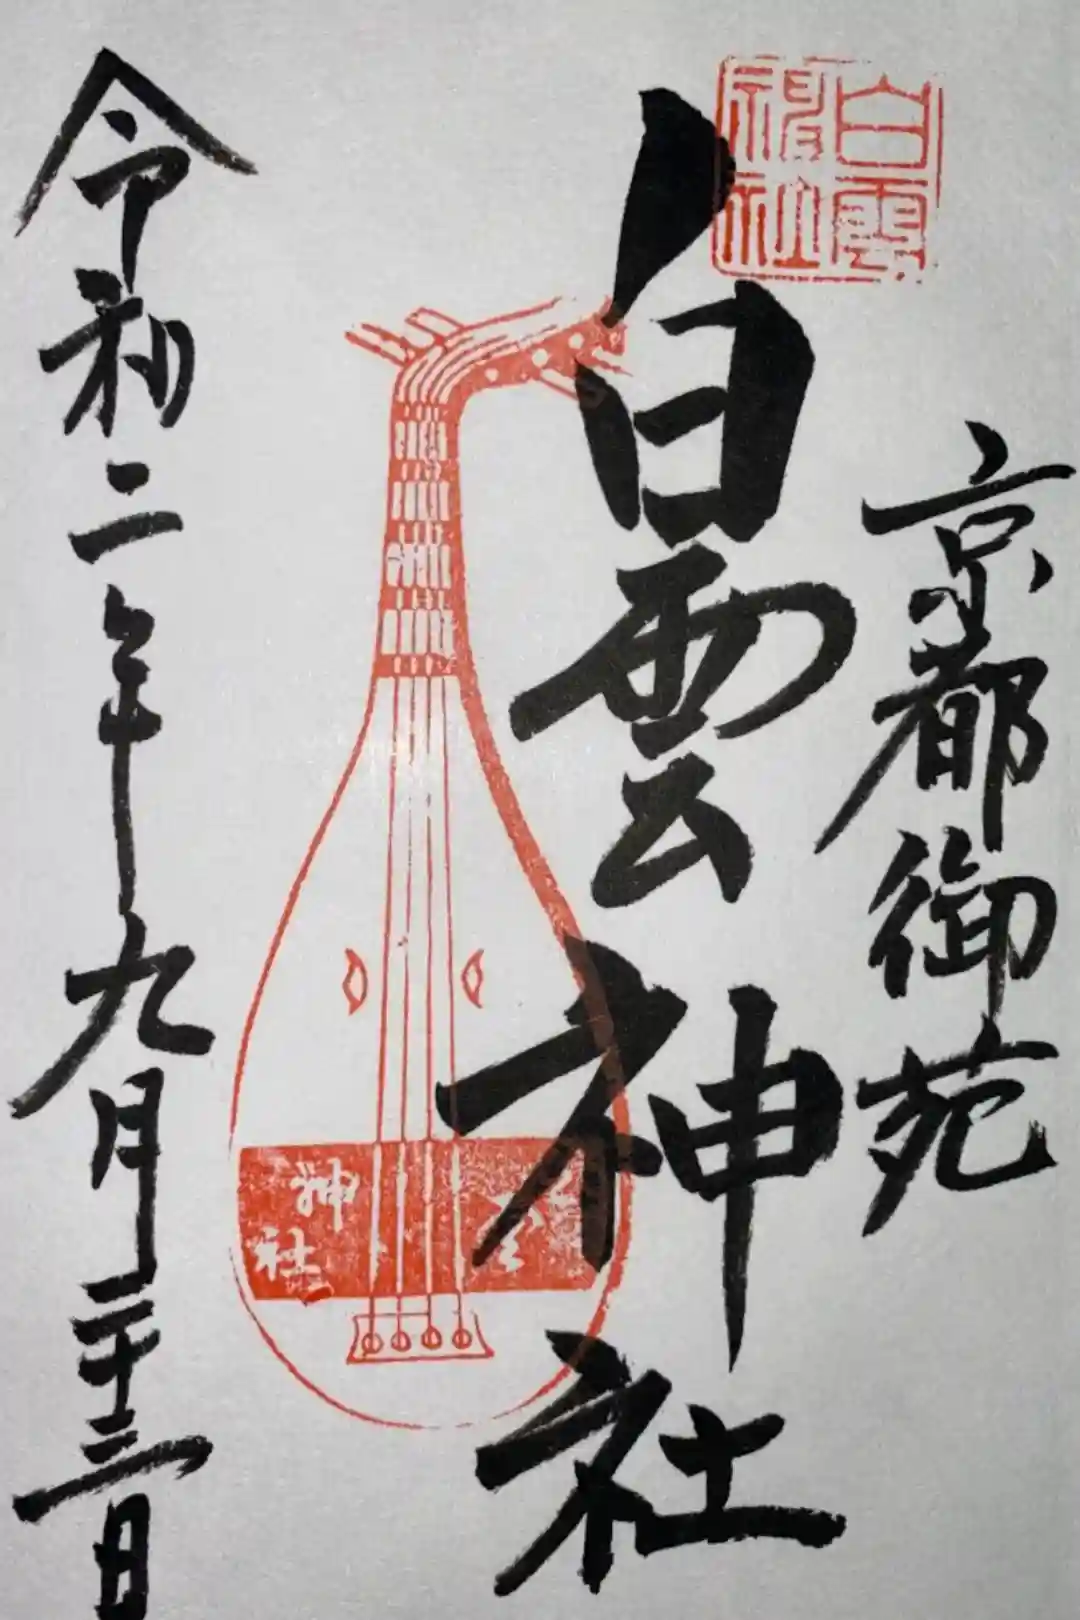 京都御苑
白雲
神社
白雲神社
雲
神社
令和二年九月二十三日